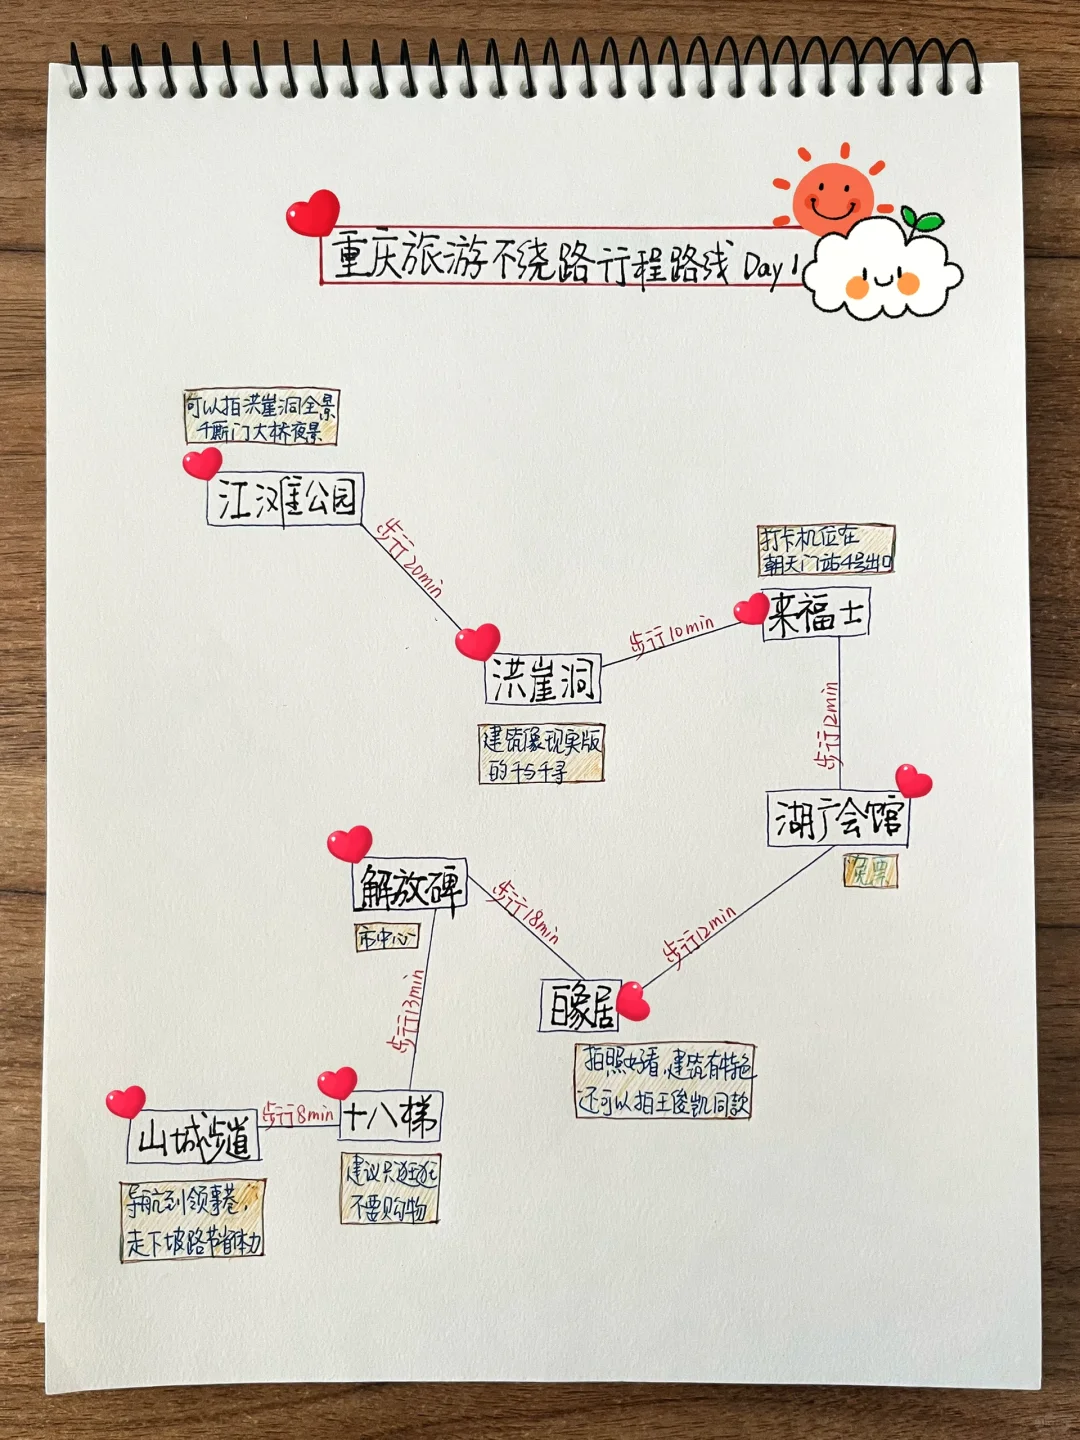 重庆旅游不绕路行程路线 Day 1
可以拍洪崖洞全景
千厮门大桥夜景
江汉滩公园
步行20min
打卡机位在
朝天门站4号出口
来福士
步行10min
洪崖洞
建筑像现实版
的千与千寻
步行12min
湖广会馆
免票
解放碑
市中心
步行18min
步行12min
白象居
拍照好看,建筑有特色
还可以拍王俊凯同款
步行13min
十八梯
步行8min
山城步道
建议只逛逛
不要购物
导航到领事巷,
走下坡路节省体力